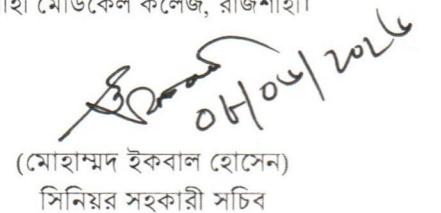 মেডিকেল কলেজ, রাজশাহী।
(মোহাম্মদ ইকবাল হোসেন)
সিনিয়র সহকারী সচিব